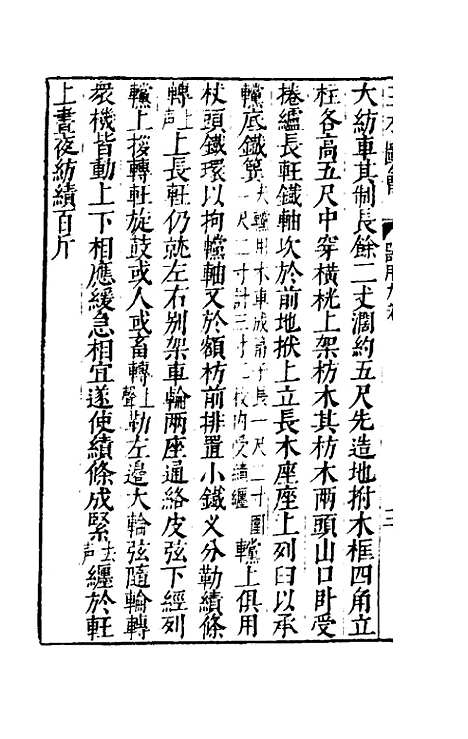 大紡車其制長餘二丈濶約五尺先造地拊木框四角立
柱各高五尺中穿橫桄上架枋木其枋木兩頭山口卧受
捲纑長軠鐵軸次於前地拊上立長木座座上列臼以承
𨏔底鐵簨夫𨏔用木車成筩子長一尺二寸圍一尺二寸計三十二枚內受績纏𨏔上俱用
杖頭鐵環以拘𨏔軸又於額枋前排置小鐵义分勒績條
轉上聲上長軠仍就左右別架車輪兩座通絡皮弦下經列
𨏔上拶轉軠旋鼓或人或畜轉上聲動左邊大輪弦隨輪轉
衆機皆動上下相應緩急相宜遂使績條成緊去聲纏於軠
上晝夜紡績百斤